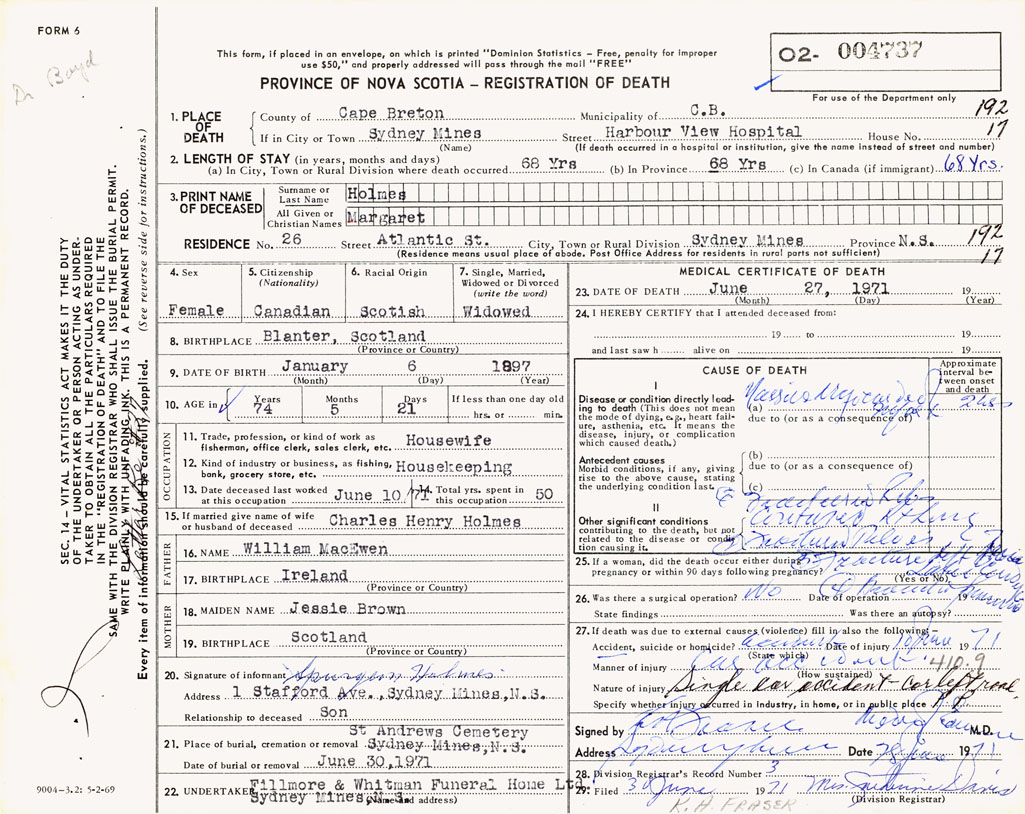 FORM 6
Dr Boyd
This form, if placed in an envelope, on which is printed "Dominion Statistics – Free, penalty for improper
use $50," and properly addressed will pass through the mail "FREE"
PROVINCE OF NOVA SCOTIA – REGISTRATION OF DEATH
02- 004737
For use of the Department only
SEC. 14 – VITAL STATISTICS ACT MAKES IT THE DUTY
OF THE UNDERTAKER OR PERSON ACTING AS UNDER-
TAKER TO OBTAIN ALL THE PARTICULARS REQUIRED
IN THE "REGISTRATION OF DEATH" AND TO FILE THE
SAME WITH THE DIVISION REGISTRAR WHO SHALL ISSUE THE BURIAL PERMIT.
WRITE PLAINLY WITH UNFADING INK. THIS IS A PERMANENT RECORD.
Every item of information should be carefully supplied. (See reverse side for instructions.)
1. PLACE OF DEATH
County of Cape Breton Municipality of C.B. 192
If in City or Town Sydney Mines Street Harbour View Hospital House No. 17
(Name) (If death occurred in a hospital or institution, give the name instead of street and number)
2. LENGTH OF STAY (in years, months and days)
(a) In City, Town or Rural Division where death occurred 68 Yrs (b) In Province 68 Yrs (c) In Canada (if immigrant) 68 Yrs.
3. PRINT NAME OF DECEASED
Surname or Last Name Holmes
All Given or Christian Names Margaret
RESIDENCE No. 26 Street Atlantic St. City, Town or Rural Division Sydney Mines Province N.S. 192
(Residence means usual place of abode. Post Office Address for residents in rural parts not sufficient) 17
4. Sex 5. Citizenship (Nationality) 6. Racial Origin 7. Single, Married, Widowed or Divorced (write the word)
Female Canadian Scotish Widowed
8. BIRTHPLACE Blanter, Scotland
(Province or Country)
9. DATE OF BIRTH January 6 1897
(Month) (Day) (Year)
10. AGE in Years Months Days If less than one day old
74 5 21 hrs. or min.
OCCUPATION
11. Trade, profession, or kind of work as
fisherman, office clerk, sales clerk, etc. Housewife
12. Kind of industry or business, as fishing,
bank, grocery store, etc. Housekeeping
13. Date deceased last worked at this occupation June 10/71 Total yrs. spent in this occupation 50
15. If married give name of wife
or husband of deceased Charles Henry Holmes
FATHER
16. NAME William MacEwen
17. BIRTHPLACE Ireland
(Province or Country)
MOTHER
18. MAIDEN NAME Jessie Brown
19. BIRTHPLACE Scotland
(Province or Country)
20. Signature of informant Spurgeon Holmes
Address 1 Stafford Ave., Sydney Mines, N.S.
Relationship to deceased Son
St Andrews Cemetery
21. Place of burial, cremation or removal Sydney Mines, N.S.
Date of burial or removal June 30, 1971
22. UNDERTAKER Fillmore & Whitman Funeral Home Ltd
Sydney Mines, N.S. (Name and address)
9004-3.2: 5-2-69
MEDICAL CERTIFICATE OF DEATH
23. DATE OF DEATH June 27, 1971 19
(Month) (Day) (Year)
24. I HEREBY CERTIFY that I attended deceased from:
19 to 19
and last saw h alive on 19
CAUSE OF DEATH
Approximate interval between onset and death
I
Disease or condition directly leading to death (This does not mean the mode of dying, e.g., heart failure, asthenia, etc. It means the disease, injury, or complication which caused death.)
(a) Massive Myocardial
due to (or as a consequence of)
Antecedent causes
Morbid conditions, if any, giving rise to the above cause, stating the underlying condition last.
(b)
due to (or as a consequence of)
(c)
II
Other significant conditions
contributing to the death, but not related to the disease or condition causing it.
Ribs
25. If a woman, did the death occur either during
pregnancy or within 90 days following pregnancy?
(Yes or No)
26. Was there a surgical operation? No Date of operation 19
State findings Was there an autopsy?
27. If death was due to external causes (violence) fill in also the following:–
Accident, suicide or homicide? Date of injury 10 June 1971
(State which)
Manner of injury Car accident 410.9
(How sustained)
Nature of injury Single car accident – car left road,
Specify whether injury occurred in Industry, in home, or in public place
Signed by M.D.
Address Date 28 June 1971
28. Division Registrar's Record Number 3
29. Filed 30 June 1971 Mrs.
(Division Registrar)
K. H. FRASER